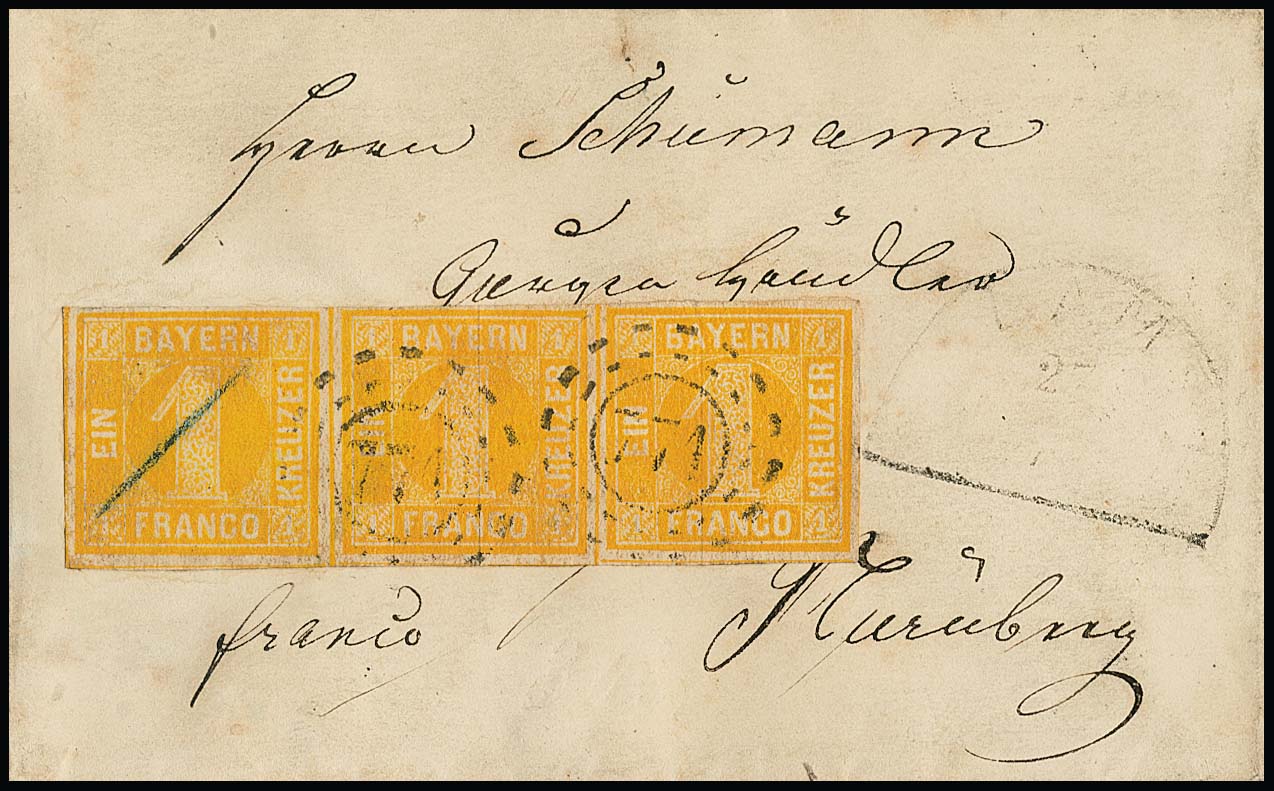 Herrn Schumann
Händler
1 BAYERN 1 1 BAYERN 1 1 BAYERN 1
EIN 1 KREUZER EIN 1 KREUZER EIN 1 KREUZER
1 FRANCO 1 1 FRANCO 1 1 FRANCO 1
franco Nürnberg